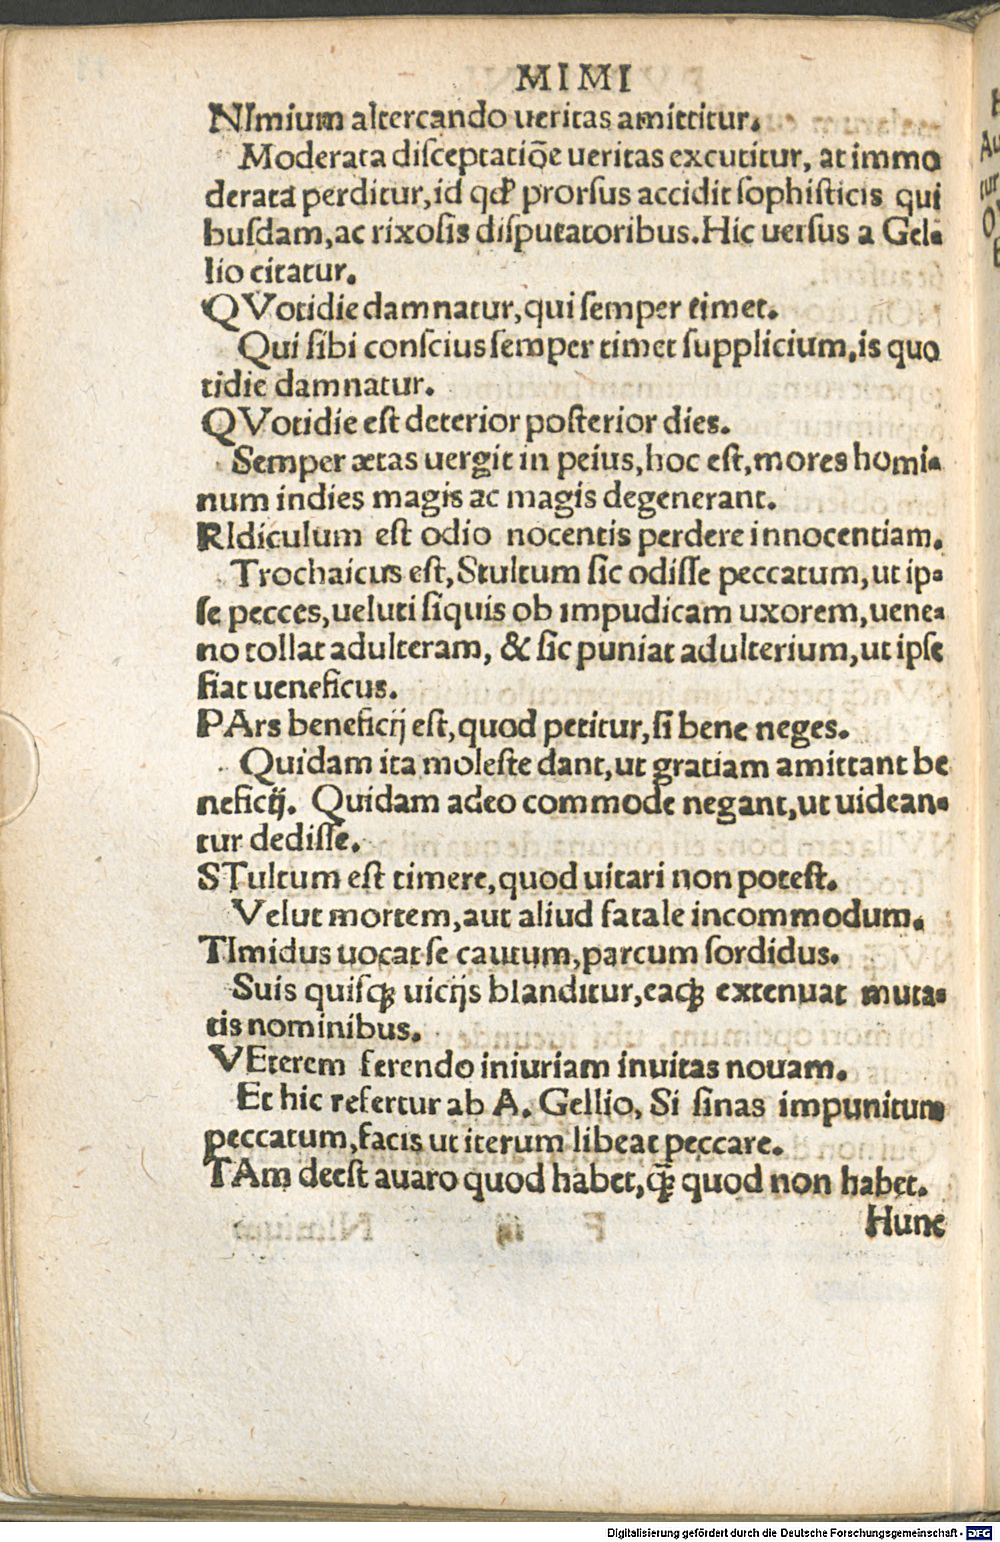 MIMI
NImium altercando ueritas amittitur.
Moderata diſceptatiōe ueritas excutitur, at immo
derata perditur,id qđ prorſus accidit ſophiſticis qui
buſdam,ac rixoſis diſputatoribus.Hic uerſus a Gel-
lio citatur.
QVotidie damnatur,qui ſemper timet.
Qui ſibi conſcius ſemper timet ſupplicium,is quo
tidie damnatur.
QVotidie eſt deterior poſterior dies.
Semper ætas uergit in peius,hoc eſt,mores homi-
num indies magis ac magis degenerant.
RIdiculum eſt odio nocentis perdere innocentiam.
Trochaicus eſt,Stultum ſic odiſſe peccatum,ut ip-
ſe pecces,ueluti ſiquis ob impudicam uxorem,uene-
no tollat adulteram, & ſic puniat adulterium,ut ipſe
fiat ueneficus.
PArs beneficij eſt,quod petitur,ſi bene neges.
Quidam ita moleſte dant,ut gratiam amittant be
neficij. Quidam adeo commode negant,ut uidean-
tur dediſſe.
STultum eſt timere,quod uitari non poteſt.
Velut mortem,aut aliud fatale incommodum.
TImidus uocat ſe cautum,parcum ſordidus.
Suis quiſqꝫ uicijs blanditur,eaqꝫ extenuat muta-
tis nominibus.
VEterem ferendo iniuriam inuitas nouam.
Et hic refertur ab A. Gellio, Si ſinas impunitum
peccatum,facis ut iterum libeat peccare.
TAm deeſt auaro quod habet,q̄ꝫ quod non habet.
Hunc
Digitalisierung gefördert durch die Deutsche Forschungsgemeinschaft - DFG